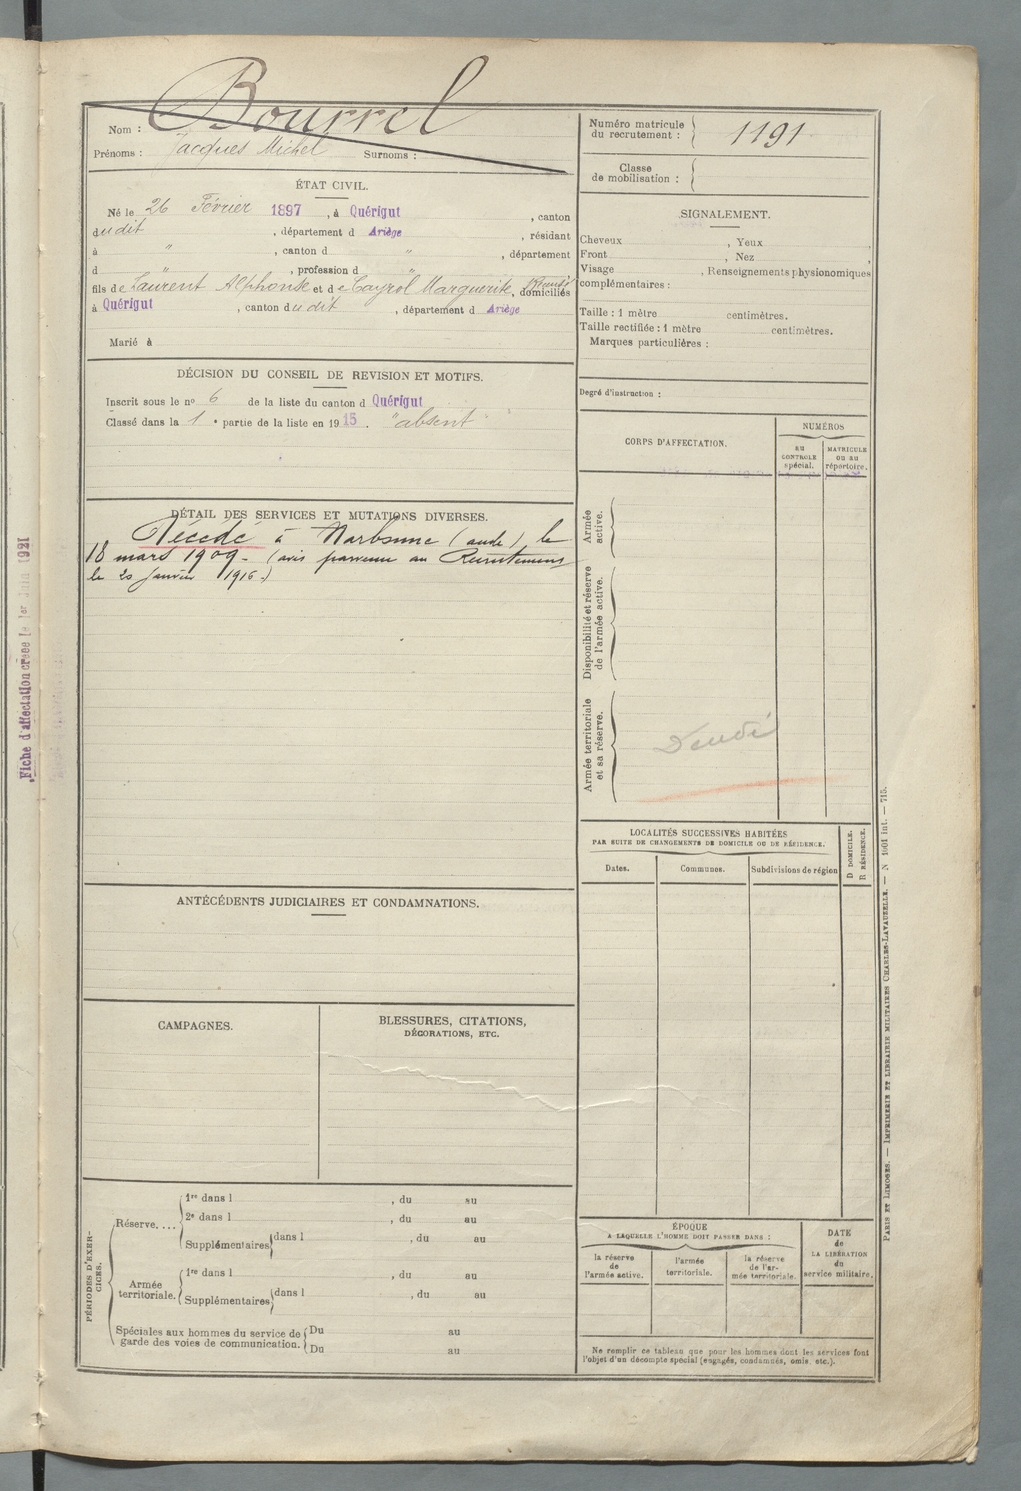 Bourrel
Nom :
Prénoms : Jacques Michel Surnoms :
Numéro matricule du recrutement : 1191
Classe de mobilisation :
ÉTAT CIVIL.
Né le 26 Février 1897, à Quérigut, canton
dudit, département d Ariège, résidant
à ", canton d ", département
d ", profession d
fils de Laurent Alphonse et de Cayrol Marguerite, domiciliés
à Quérigut, canton dudit, département d Ariège
Marié à
SIGNALEMENT.
Cheveux , Yeux ,
Front , Nez ,
Visage , Renseignements physionomiques
complémentaires :
Taille : 1 mètre centimètres.
Taille rectifiée : 1 mètre centimètres.
Marques particulières :
Degré d'instruction :
DÉCISION DU CONSEIL DE REVISION ET MOTIFS.
Inscrit sous le nº 6 de la liste du canton d Quérigut
Classé dans la 1 e partie de la liste en 1915. "absent"
DÉTAIL DES SERVICES ET MUTATIONS DIVERSES.
Décédé à Narbonne (aude) le
18 mars 1909 - (avis parvenu au Recrutement
le 20 janvier 1916 -)
CORPS D'AFFECTATION.
NUMÉROS
AU CONTROLE spécial.
MATRICULE ou au répertoire.
Armée active.
Disponibilité et réserve de l'armée active.
Armée territoriale et sa réserve.
LOCALITÉS SUCCESSIVES HABITÉES
PAR SUITE DE CHANGEMENTS DE DOMICILE OU DE RÉSIDENCE.
Dates.
Communes.
Subdivisions de région
D DOMICILE.
R RÉSIDENCE.
ANTÉCÉDENTS JUDICIAIRES ET CONDAMNATIONS.
CAMPAGNES.
BLESSURES, CITATIONS,
DÉCORATIONS, ETC.
PÉRIODES D'EXERCICES.
Réserve....
1re dans l , du au
2e dans l , du au
Supplémentaires dans l , du au
Armée territoriale.
1re dans l , du au
Supplémentaires dans l , du au
Spéciales aux hommes du service de
garde des voies de communication.
Du au
Du au
ÉPOQUE
A LAQUELLE L'HOMME DOIT PASSER DANS :
la réserve de l'armée active.
l'armée territoriale.
la réserve de l'armée territoriale.
DATE de LA LIBÉRATION du service militaire.
Ne remplir ce tableau que pour les hommes dont les services font
l'objet d'un décompte spécial (engagés, condamnés, omis, etc.).
PARIS ET LIMOGES. — IMPRIMERIE ET LIBRAIRIE MILITAIRES CHARLES-LAVAUZELLE. — N 1001 int. — 715.
Fiche d'affectation créée le 1er Juin 1921